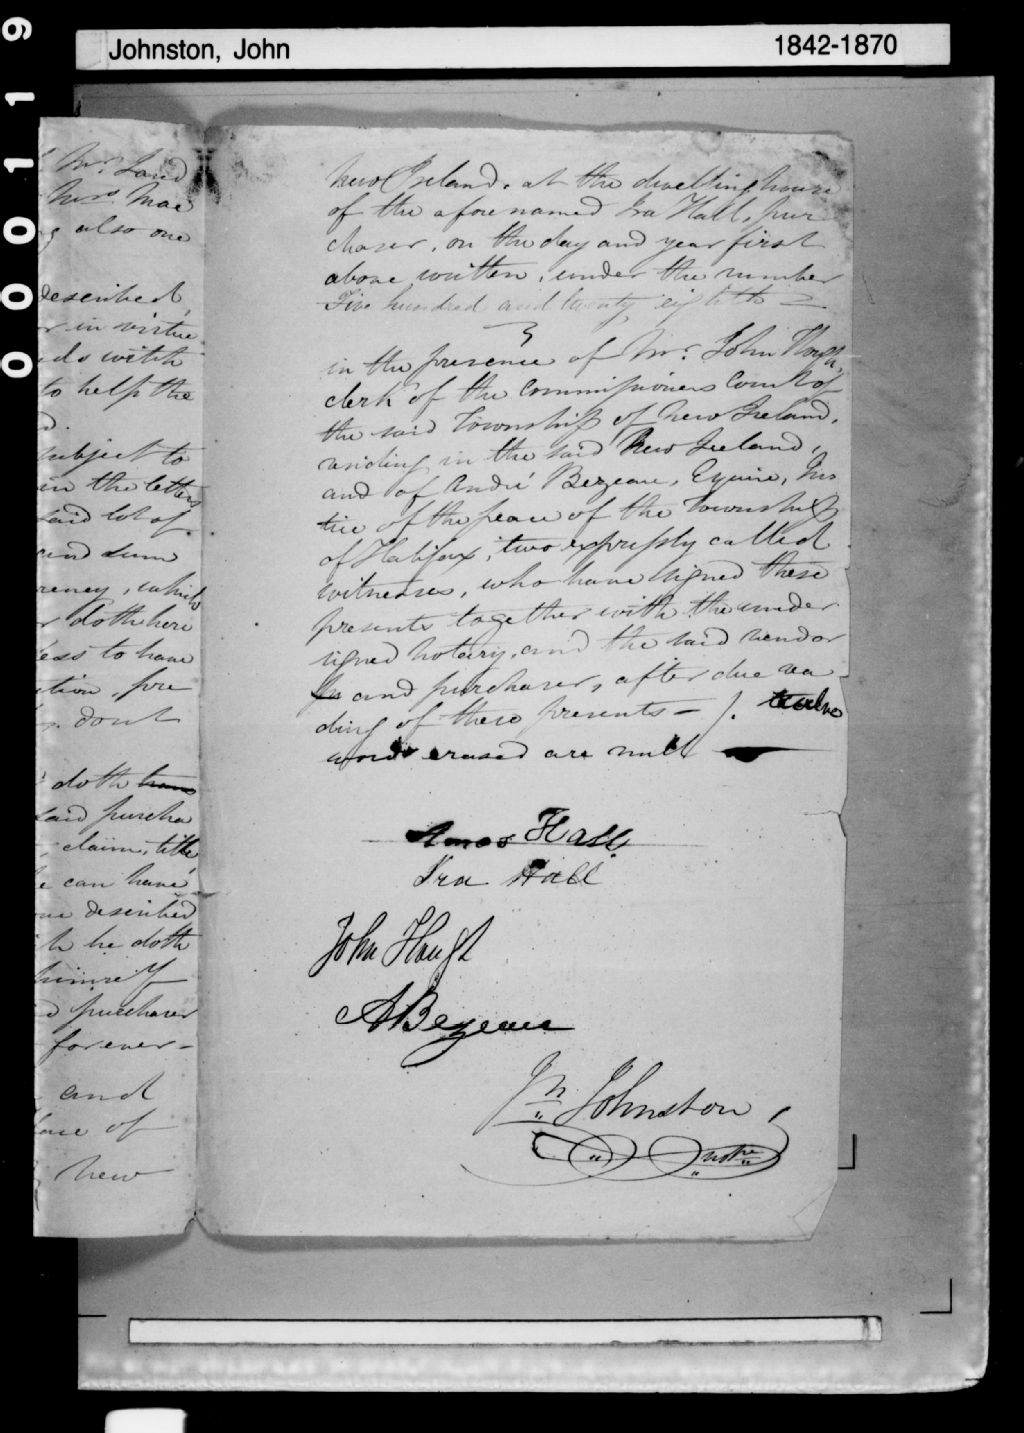 Johnston, John 1842-1870
000119
Mr. Land
Mrs. Mac
also one
described,
or in virtue
ds witth
to help the
subject to
in the letters
said lot of
and sum
rency, which
r doth here
less to have
ition, pre
dont
doth
said purcha
claim, title
he can have
me described
h he doth
himself
d purchaser
forever -
and
face of
New
New Ireland, at the dwelling house
of the aforenamed Ira Hall, pur
chaser, on the day and year first
above written, under the number
Five hundred and twenty eighth =
in the presence of Mr. John Hough,
clerk of the commissioners Court of
the said Township of New Ireland,
residing in the said New Ireland,
and of André Bezeau, Equire, Jus
tice of the peace of the Township
of Halifax, two expressly called
witnesses, who have signed these
presents together with the under
signed notary, and the said vendor
and purchaser, after due rea
ding of these presents - /. twelve
words erased are null
Amos Hall
Ira Hall
John Hough
ABezeau
Jn Johnston,
notre